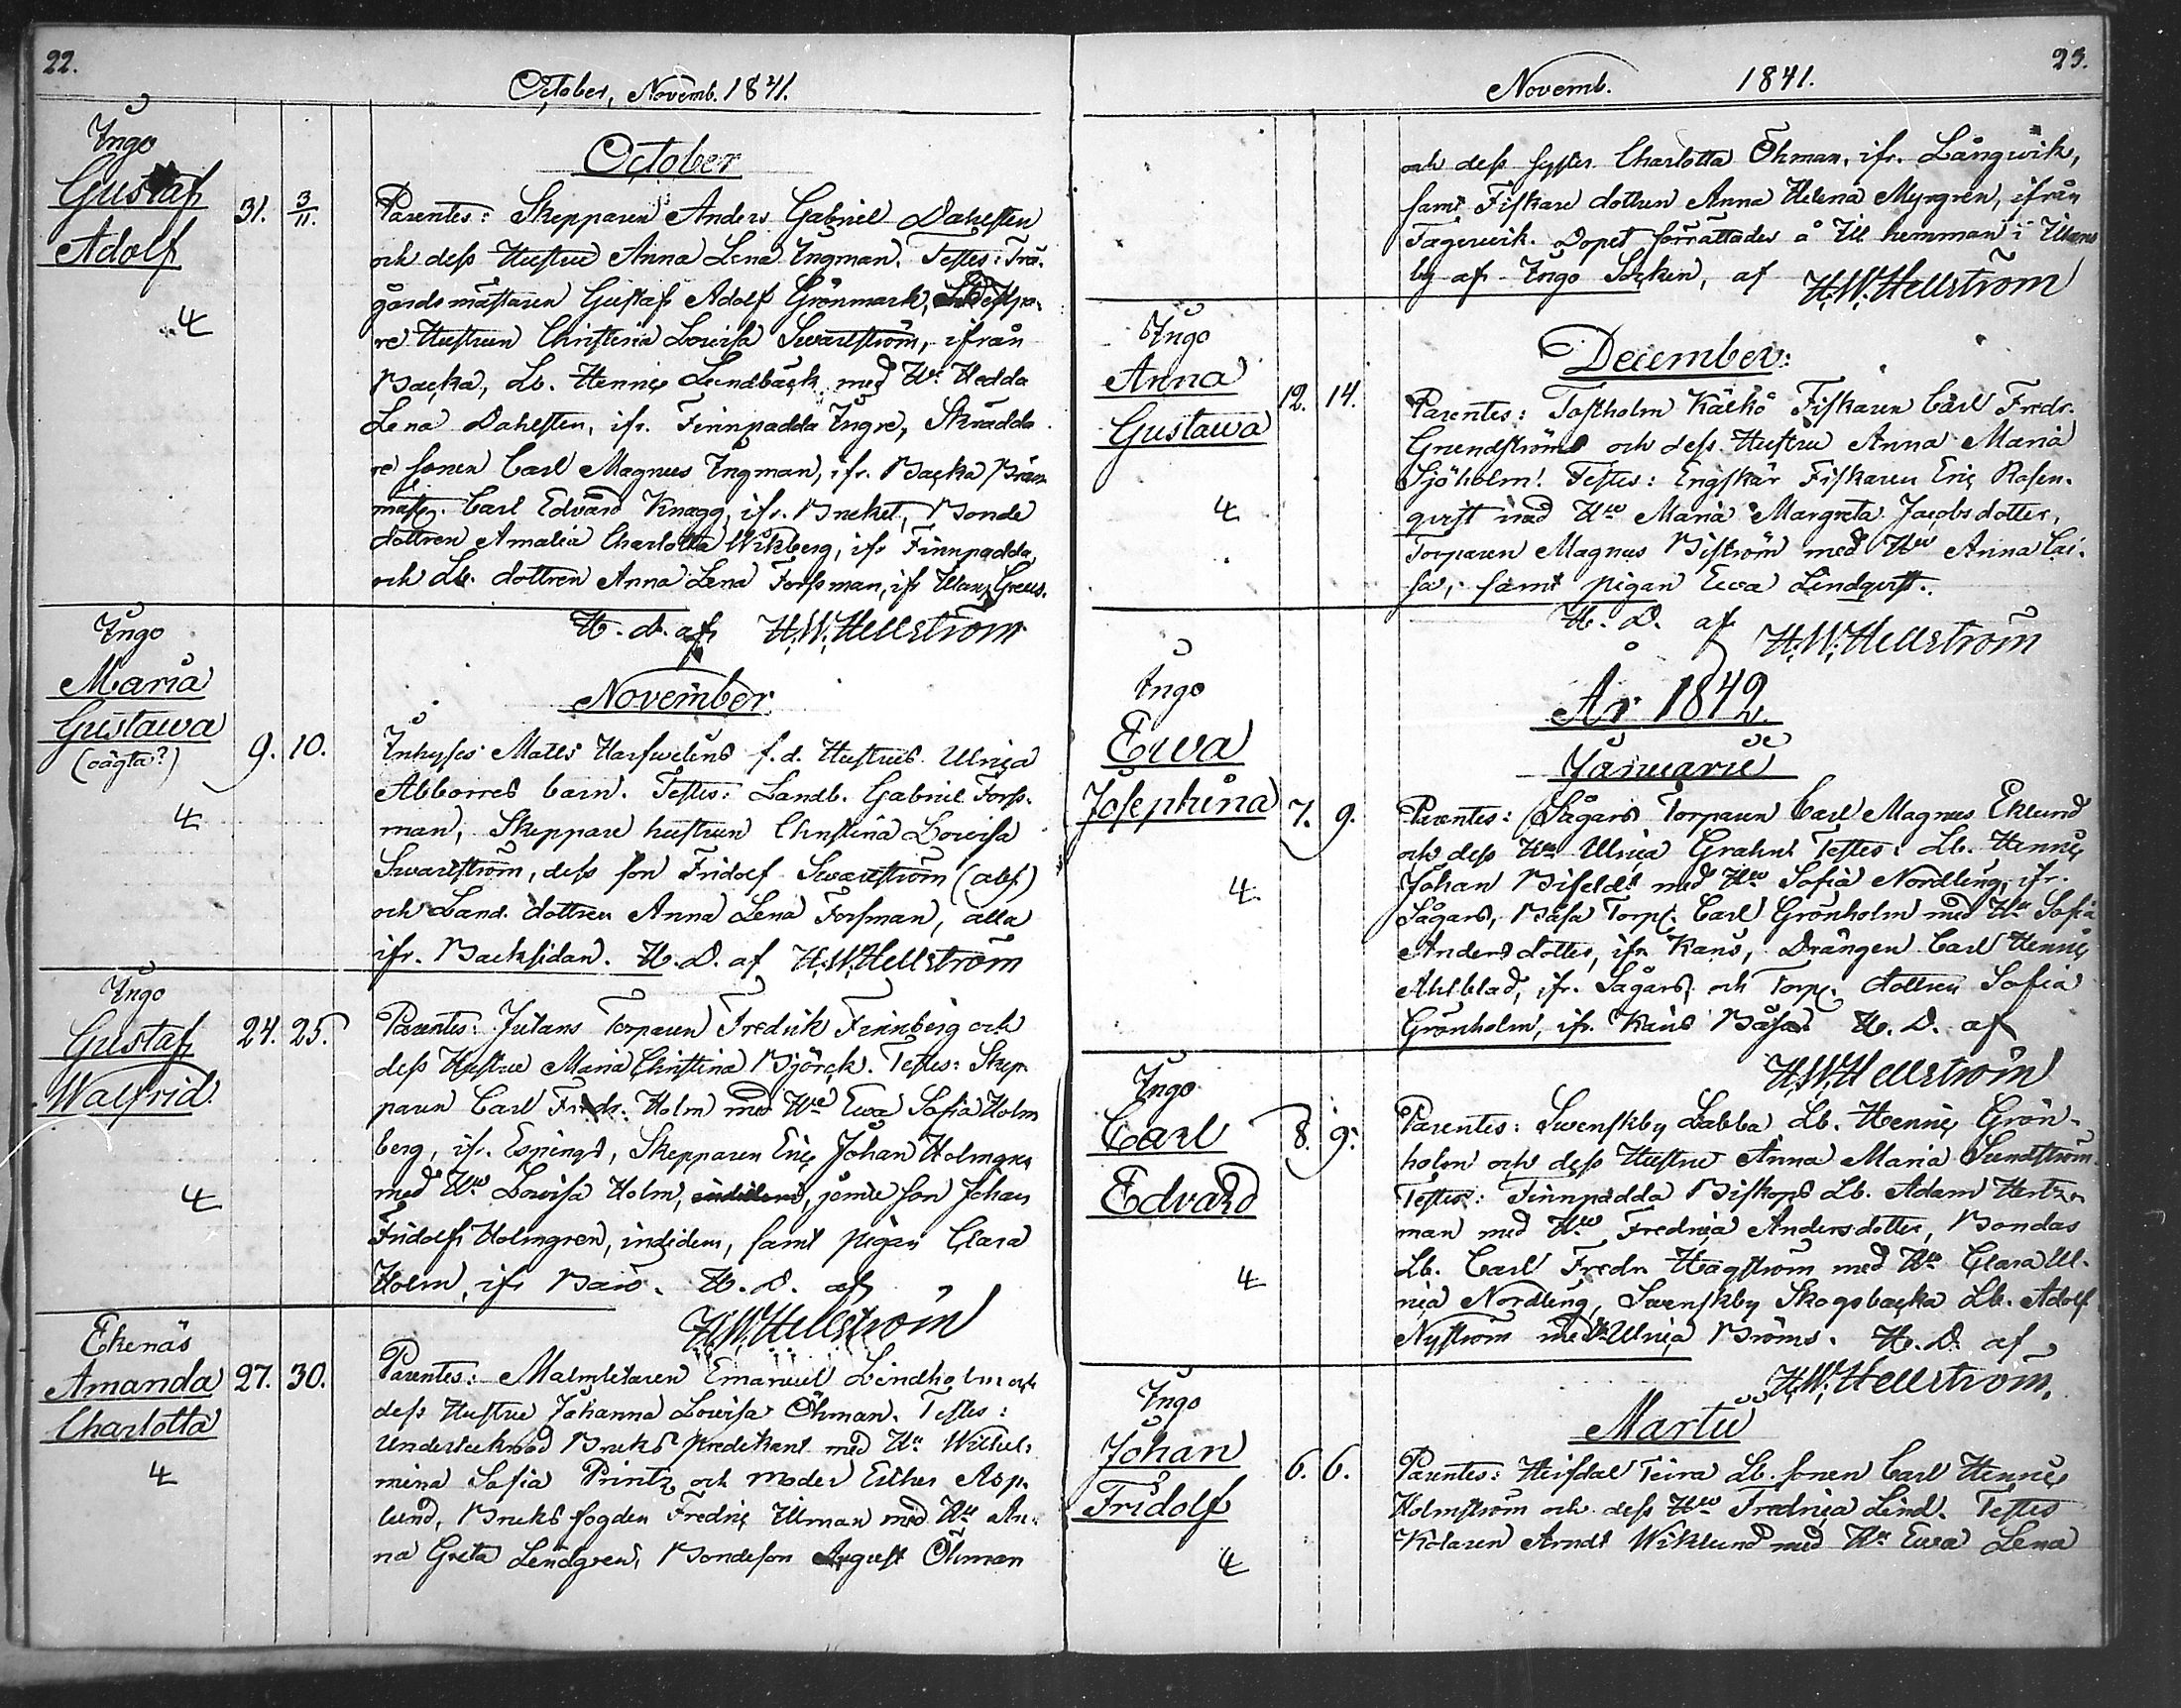 22.
October, Novemb. 1841.
Ingo
Gustaf
Adolf
4
31. 3/11.
October
Parentes: Skepparen Anders Gabriel Dahlsten
och dess Hustru Anna Lena Ingman. Testes: Trä-
gårdsmästaren Gustaf Adolf Grönmark, Skeppa-
re Hustrun Christina Lovisa Swartström, ifrån
Backa, Lb. Henric Lundbäck med Hu Hedda
Lena Dahlsten, ifr. Finnpadda Yngre, Skrädda
re sonen Carl Magnus Ingman, ifr. Backa
mäst. Carl Edvard Knagg, ifr. Bruket, Bonde
dottren Amalia Charlotta Wikberg, ifr Finnpadda,
och Lb. dottren Anna Lena Forssman, ifr
H. d. af H.W.Hellström
Ingo
Maria
Gustawa
(oägta?)
4
9. 10.
November
Inhyses Matts f.d. Hustrus Ulrica
Abborres barn. Testes: Landb. Gabriel Forss-
man, Skeppare hustrun Christina Lowisa
Swartström, dess son Fridolf Swartström (abs)
och Land. dottren Anna Lena Forsman, alla
ifr. Backsidan. H.D. af H.W.Hellström
Ingo
Gustaf
Walfrid
4
24. 25.
Parentes: Jutans Torparen Fredrik Finnberg och
dess Hustru Maria Christina Björck. Testes: Skep-
paren Carl Fredr. Holm med Hu Ewa Sofia Holm
berg, ifr. Espings, Skepparen Eric Johan Holmgren
med Hu Lovisa Holm, jämte son Johan
Fridolf Holmgren, indidem, samt pigan Clara
Holm, ifr Barö. H.D. af
H.W.Hellström
Ekenäs
Amanda
Charlotta
4
27. 30.
Parentes: Malmletaren Emanuel Lindholm och
dess Hustru Johanna Lowisa Öhman. Testes:
Undertecknad Bruks predikant med Hu Wilhel-
mina Sofia Printz och moder Esther Asp-
lund, Bruks fogden Fredric Illman med Hu An-
na Greta Lindgren, Bondeson August Öhman
Novemb. 1841.
23.
och dess syster Charlotta Öhman, ifr. Långwik,
samt Fiskare dottren Anna Helena Myrgren, ifrån
Fagerwik. Dopet förrättades å Ill hemman i
by af Ingo Socken, af H.W.Hellström
Ingo
Anna
Gustawa
4
12. 14.
December:
Parentes: Tostholm Kälkö Fiskaren Carl Fredr.
Grundström och dess Hustru Anna Maria
Sjöholm. Testes: Engskär Fiskaren Eric Rosen-
qvist med Hu Maria Margreta Jacobsdotter,
Torparen Magnus Biström med Hu Anna Cai-
sa, samt pigan Ewa Lindqvist.
H. D. af H.W.Hellström
År 1842
Januarii
Ingo
Ewa
Josephina
4
7. 9.
Parentes: Sågars Torparen Carl Magnus Eklund
och dess Hu Ulrica Grahn. Testes: Lb. Henric
Johan Bifeldt med Hu Sofia Nordling, ifr.
Sågars, Båsa Torp. Carl Grönholm med Hu Sofia
Andersdotter, ifr. Kans, Drängen Carl Henric
Ahlblad, ifr. Sågars, och Torp. dottren Sofia
Grönholm, ifr. Kans Båsas H. D. af
H.W.Hellström
Ingo
Carl
Edvard
4
8. 9.
Parentes: Swenskby Labba Lb. Henric Grön-
holm och dess Hustru Anna Maria Sundström
Testes: Finnpadda Biskops Lb. Adam Hertz-
man med Hu Fredrica Andersdotter, Bondas
Lb. Carl Fredr. Hagström med Hu Clara Ul-
rica Nordling, Swenskby Skogsbacka Lb. Adolf
Nyström med Hu Ulrica Bröms. H. D. af
H.W.Hellström.
Ingo
Johan
Fridolf
4
6. 6.
Martii
Parentes: Heisdal Teira Lb. sonen Carl Henric
Holmström och dess Hu Fredrica Lind. Testes
Kolaren Arndt Wiklund med Hu Ewa Lena